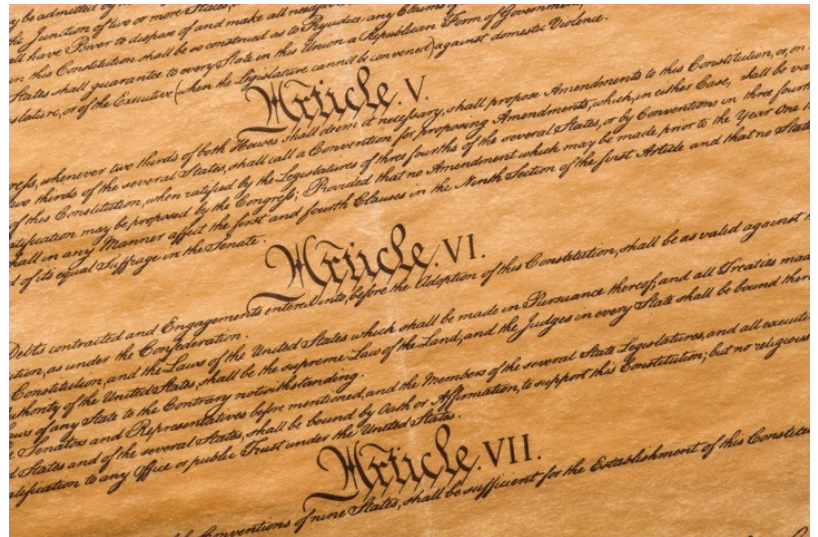 y be admitted by the
the Junction of two or more States,
all have Power to dispose of and make all needful
in this Constitution shall be so construed as to Prejudice any Claims of
States shall guarantee to every State in this Union a Republican Form of Government,
slature, or of the Executive (when the Legislature cannot be convened) against domestic Violence.
Article. V.
reſs, whenever two thirds of both Houses shall deem it necessary, shall propose Amendments to this Constitution, or, on
two thirds of the several States, shall call a Convention for proposing Amendments, which, in either Case, shall be va
of this Constitution, when ratified by the Legislatures of three fourths of the several States, or by Conventions in three fourth
atification may be proposed by the Congreſs; Provided that no Amendment which may be made prior to the Year One
hall in any Manner affect the first and fourth Clauses in the Ninth Section of the first Article and that no State
d of its equal Suffrage in the Senate.
Article. VI.
Debts contracted and Engagements entered into, before the Adoption of this Constitution, shall be as valid against
tion, as under the Confederation.
Constitution, and the Laws of the United States which shall be made in Pursuance thereof; and all Treaties mad
uthority of the United States, shall be the supreme Law of the Land; and the Judges in every State shall be bound ther
aws of any State to the Contrary notwithstanding.
e Senators and Representatives before mentioned, and the Members of the several State Legislatures, and all executi
d States and of the several States, shall be bound by Oath or Affirmation, to support this Constitution; but no religious
alification to any Office or public Trust under the United States.
Article. VII.
Conventions of nine States, shall be sufficient for the Establishment of this Constitu